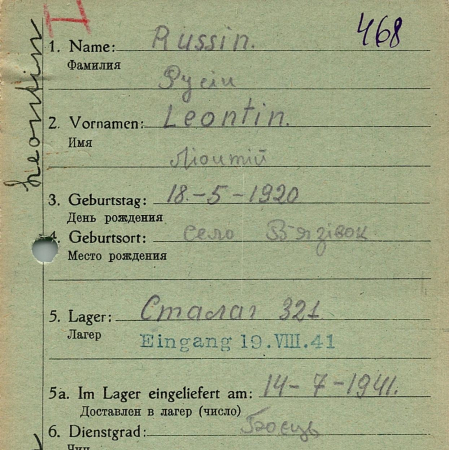 Leontin
I
468
1. Name: Russin.
Фамилия
Русін
2. Vornamen: Leontin.
Имя
3. Geburtstag: 18.-5-1920
День рождения
4. Geburtsort: село Вязівок
Место рождения
5. Lager: Сталаг 321
Лагер
Eingang 19.VIII.41
5a. Im Lager eingeliefert am: 14-7-1941.
Доставлен в лагер (число)
6. Dienstgrad: Боець
Чин